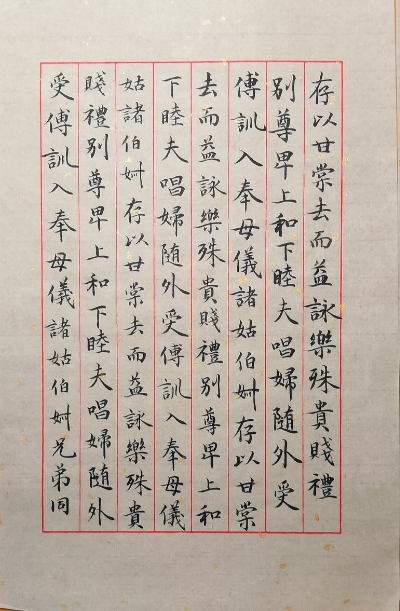 存以甘棠去而益詠樂殊貴賤禮
別尊卑上和下睦夫唱婦随外受
傅訓入奉母儀諸姑伯𠦑存以甘棠
去而益詠樂殊貴賤禮別尊卑上和
下睦夫唱婦随外受傅訓入奉母儀
姑諸伯𠦑存以甘棠去而益詠樂殊貴
賤禮別尊卑上和下睦夫唱婦随外
受傅訓入奉母儀諸姑伯𠦑兄弟同